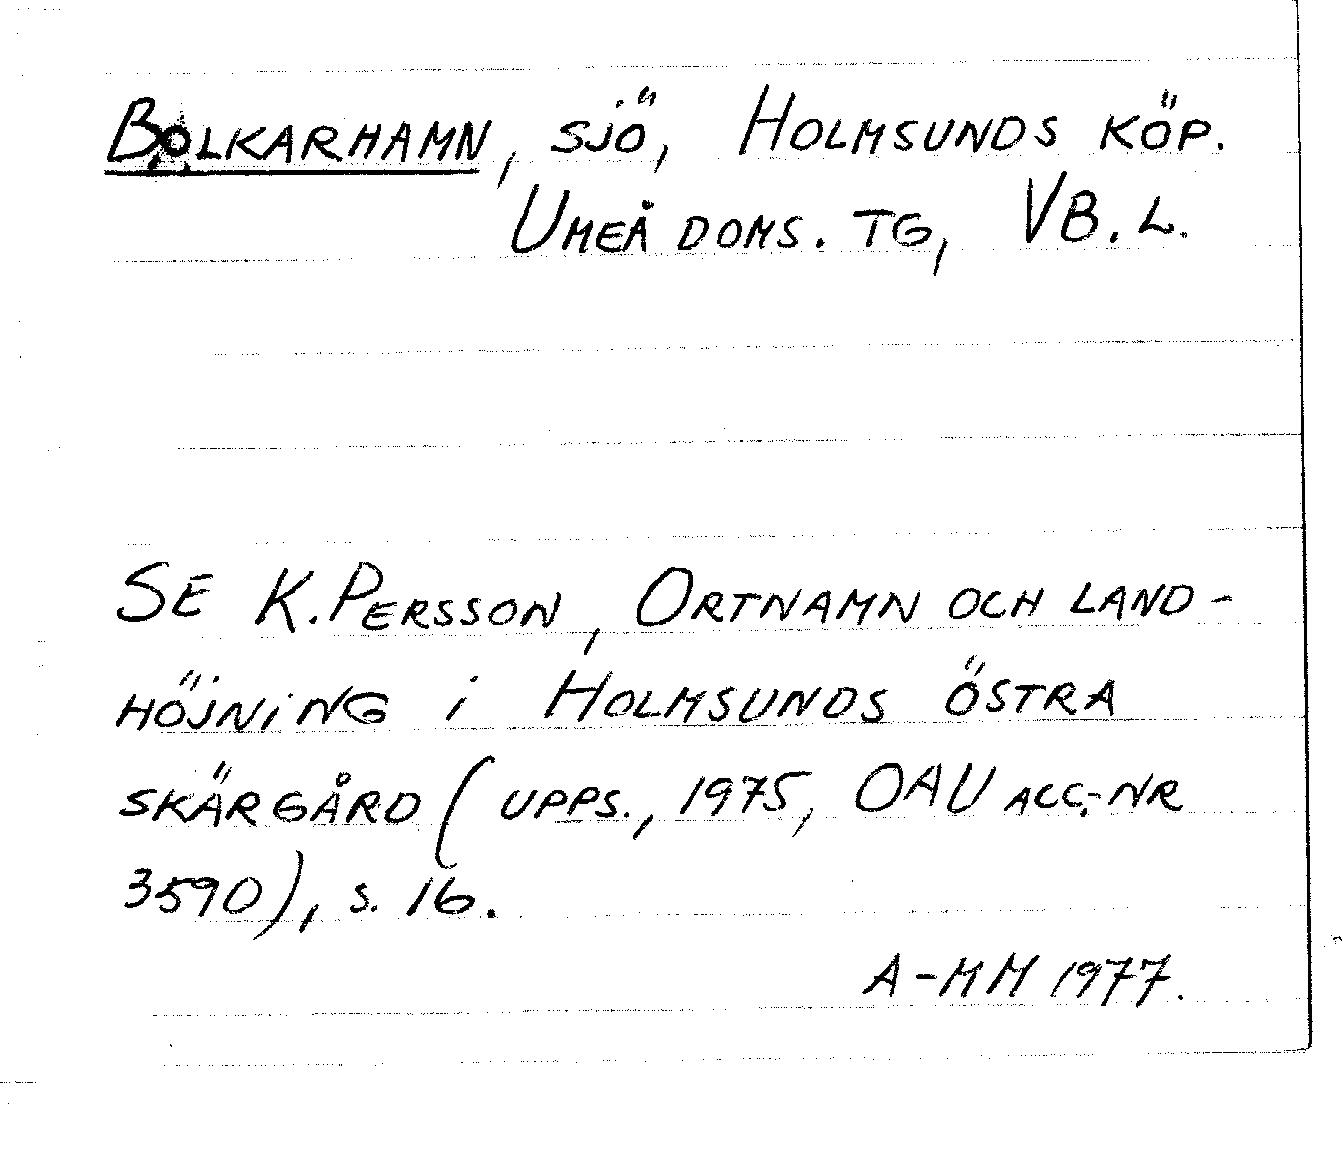 BOLKARHAMN, SJÖ, HOLMSUNDS KÖP.
UMEÅ DOMS. TG, VB. L.
SE K. PERSSON, ORTNAMN OCH LAND-
HÖJNING i HOLMSUNDS ÖSTRA
SKÄRGÅRD (UPPS., 1975, OAU ACC.-NR
3590), S. 16.
A-MM 1977.